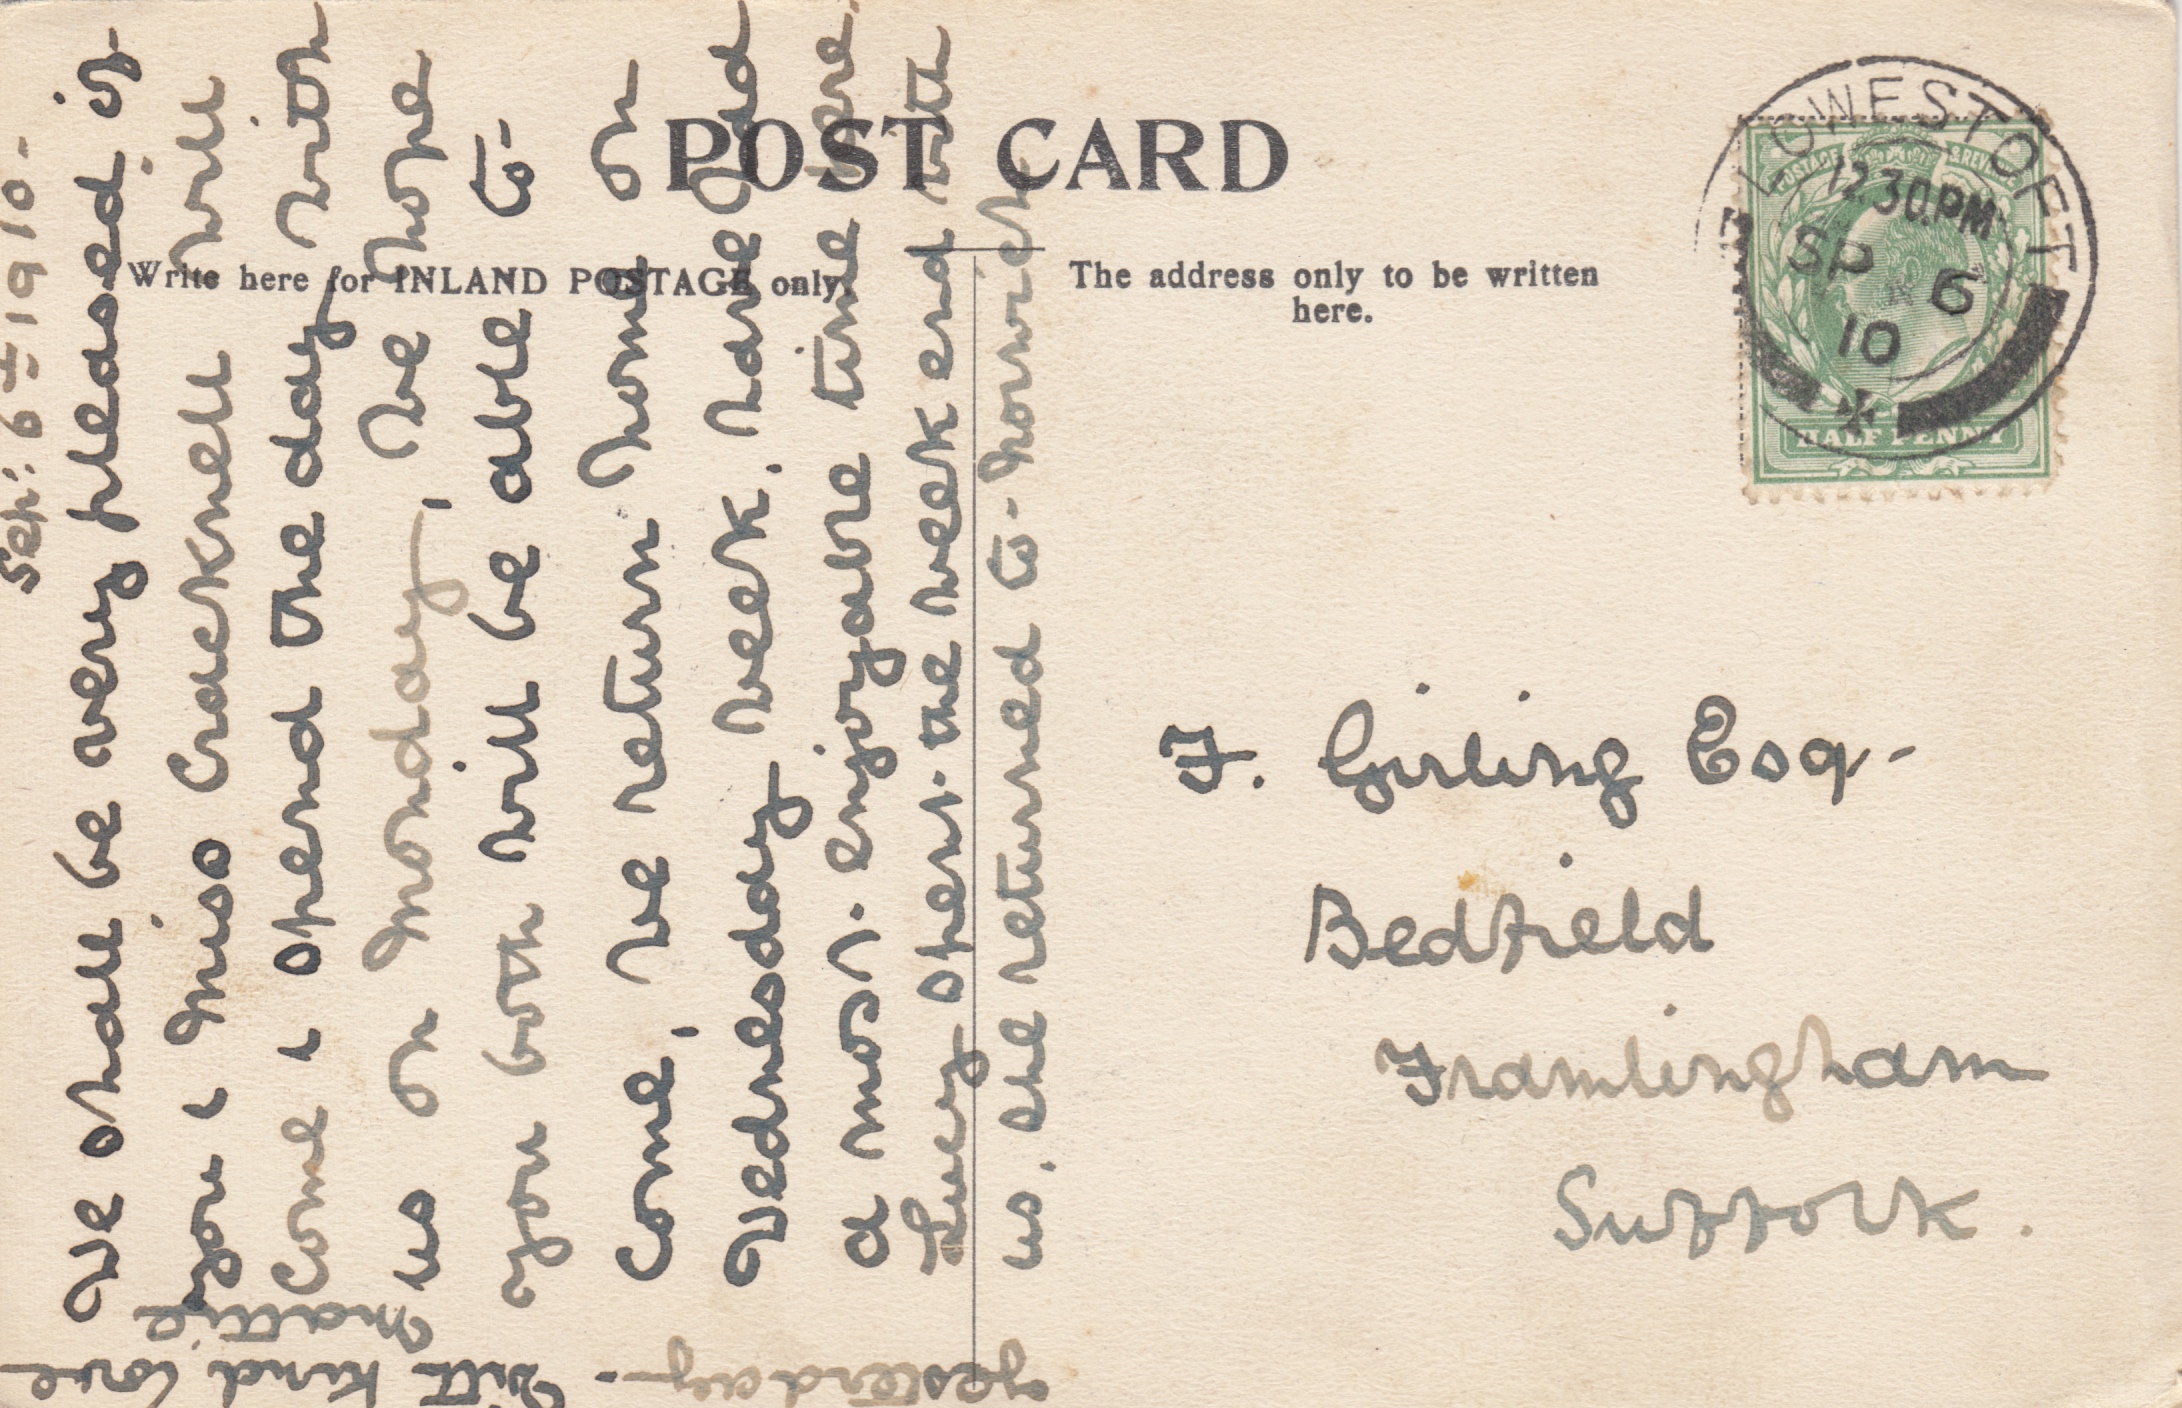 POST CARD
Write here for INLAND POSTAGE only.
The address only to be written
here.
LOWESTOFT
12.30 PM
SP 6
10
POSTAGE & REVENUE
HALF PENNY
Sep: 6th 1910-
We shall be very pleased if
you & Miss Cracknell will
come & spend the day with
us on Monday, we hope
you both will be able to-
come, we return home on
Wednesday week. have had
a most. enjoyable time here.
Lucy spent. the week end with
us. she returned to- Norwich
yesterday-.
With kind love
Mattie
F. Girling Esq-
Bedfield
Framlingham
Suffolk.